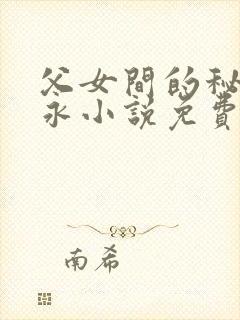 父女間的秘
永小說免費
南希